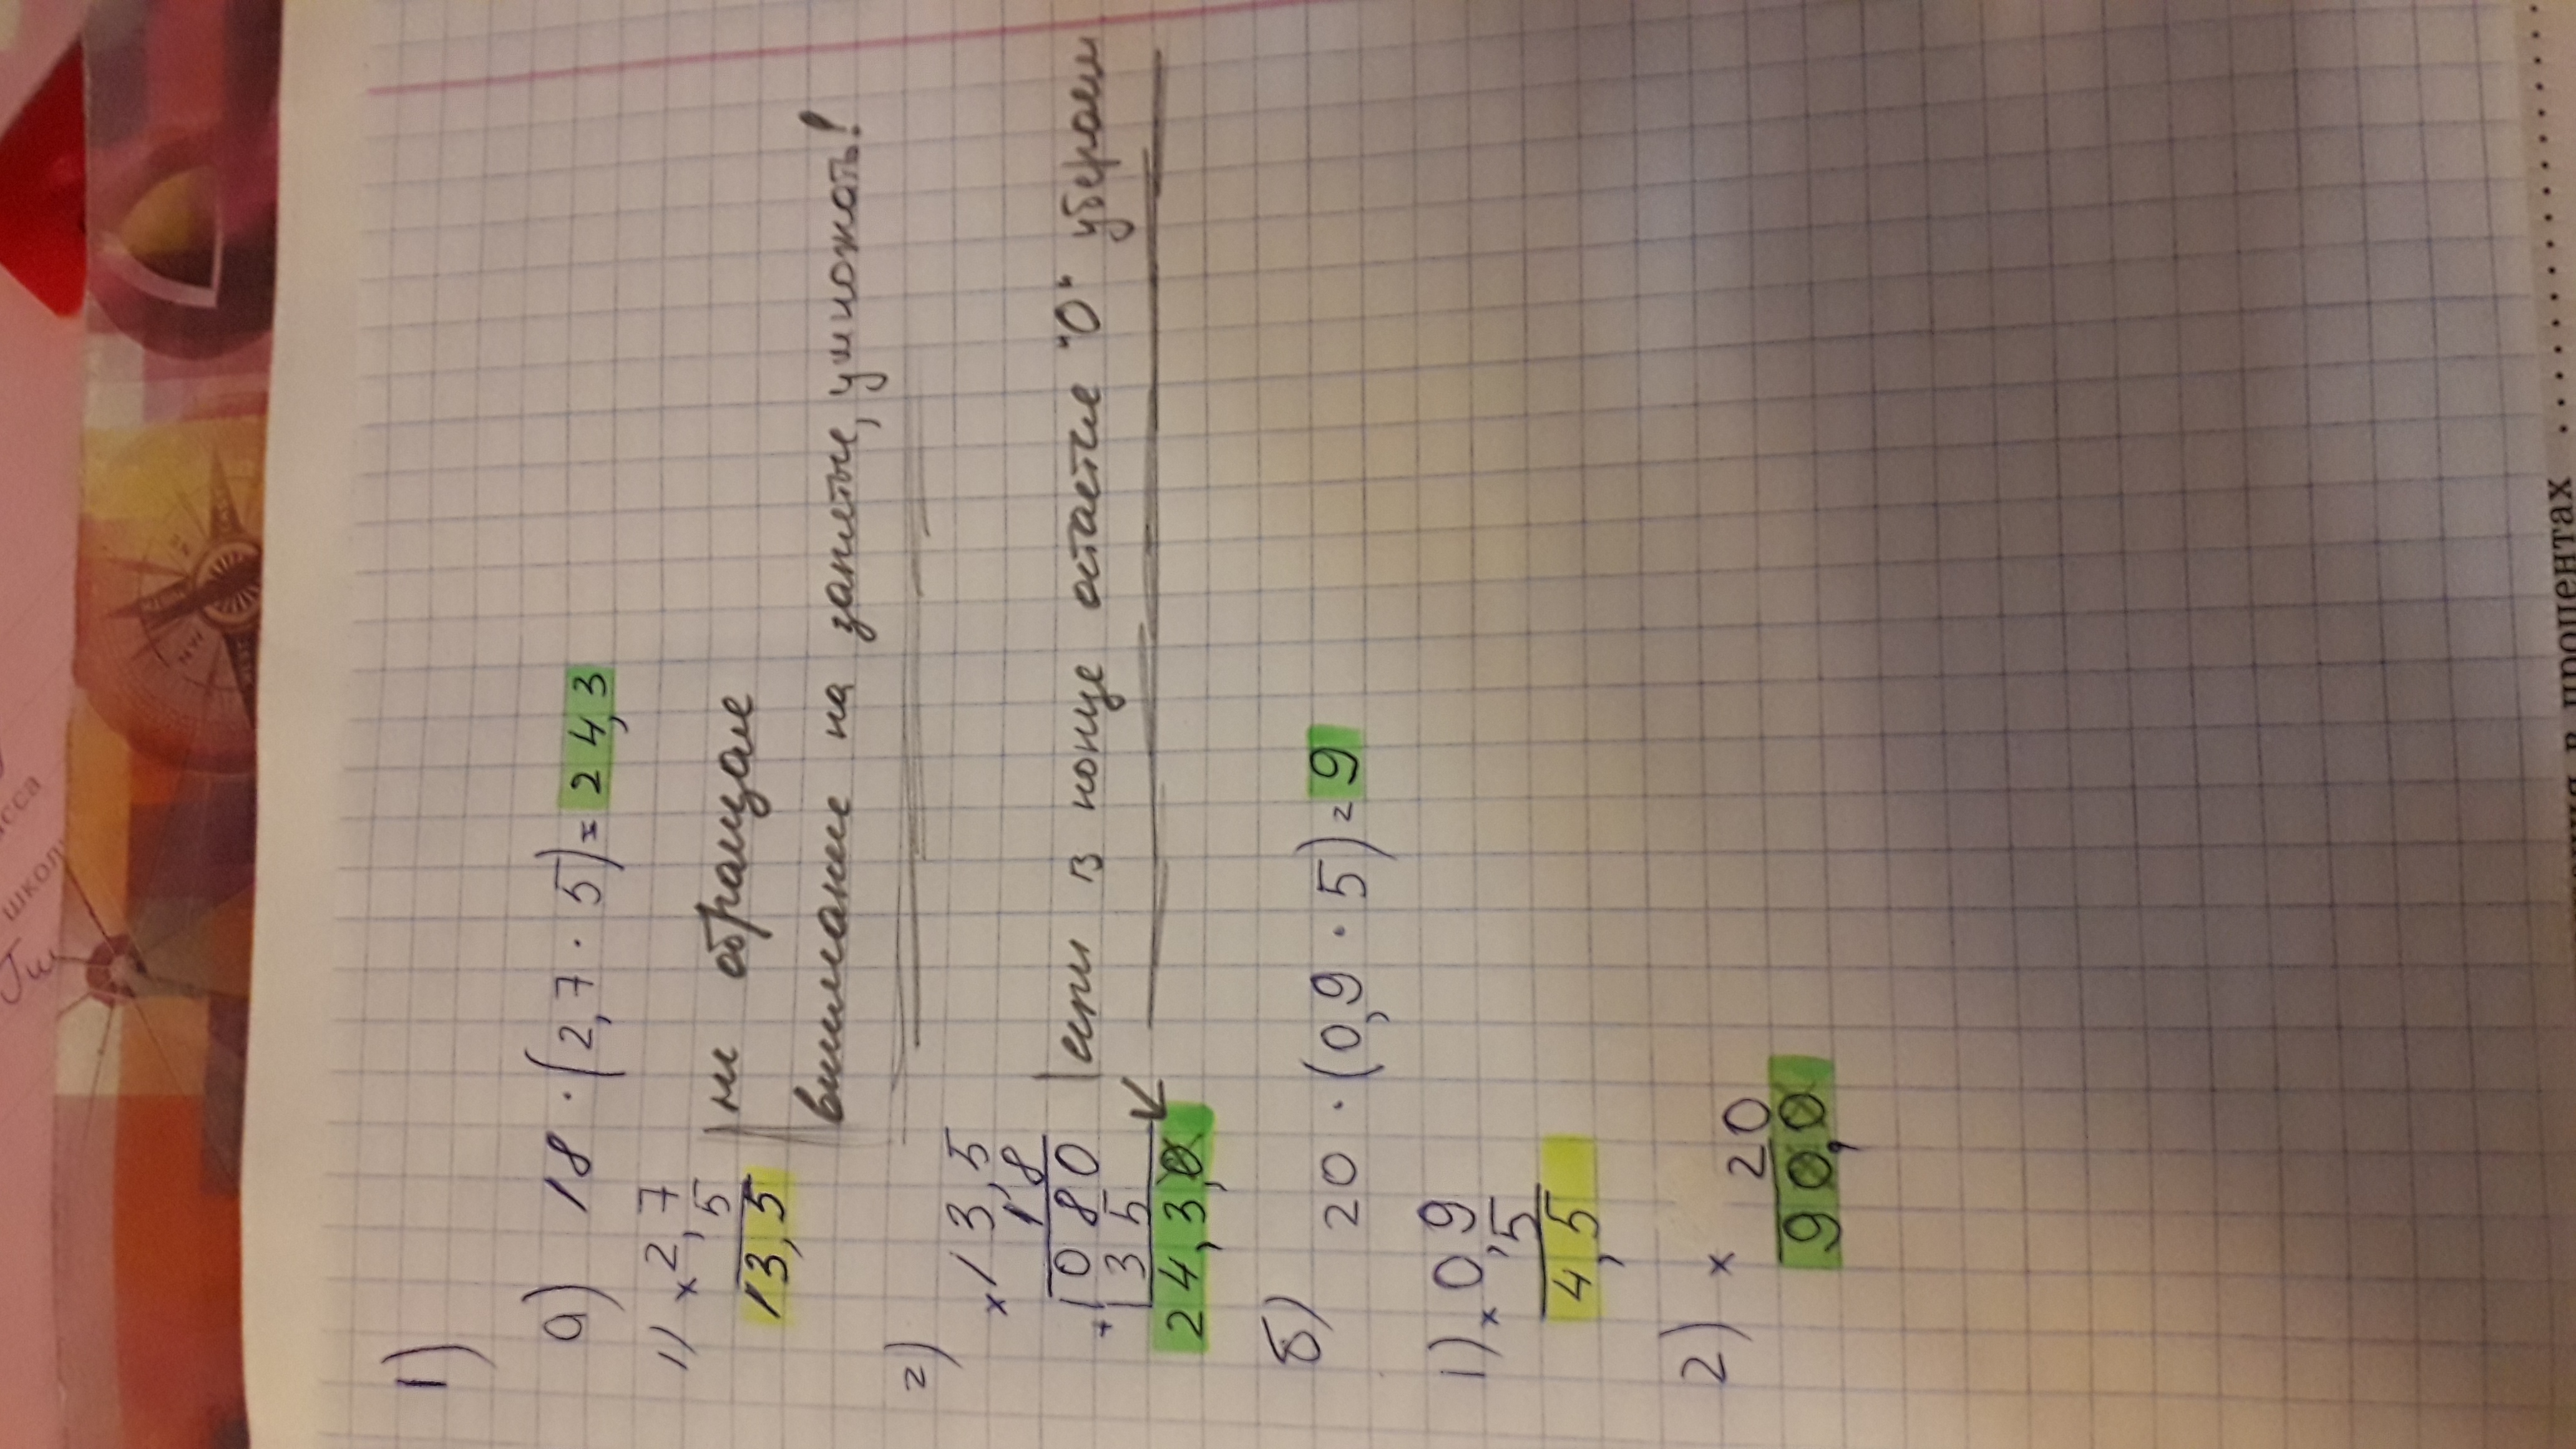 1)
а) 18 · (2,7 · 5) = 24,3
1) × 2,7
5
13,5
не обращаем
внимание на запятые, умножать!
2) × 13,5
1,8
1080
+ 135
24,3,0
если в конце остается "0" убераем
б) 20 · (0,9 · 5) = 9
1) × 0,9
5
4,5
2) ×
20
90,0
в процентах